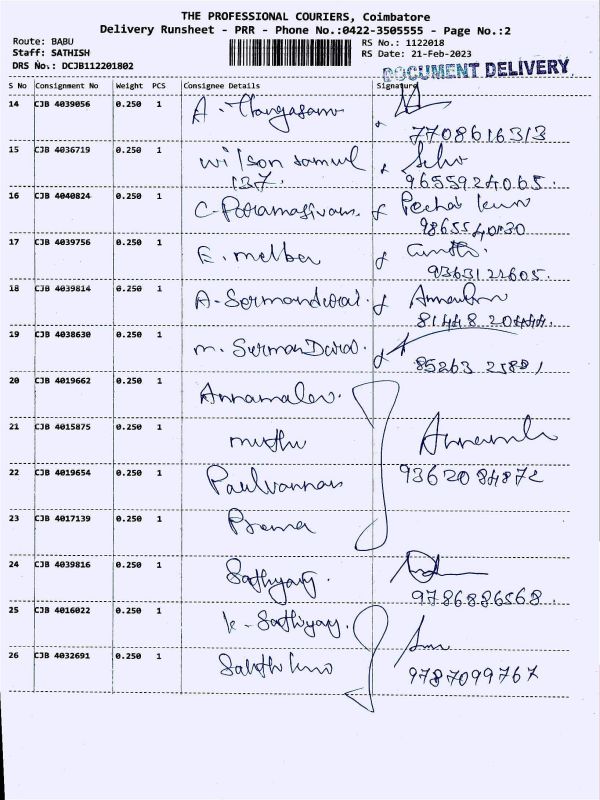 THE PROFESSIONAL COURIERS, Coimbatore
Delivery Runsheet - PRR - Phone No.:0422-3505555 - Page No.:2
Route: BABU
RS No.: 1122018
Staff: SATHISH
RS Date: 21-Feb-2023
DRS No.: DCJB112201802
DOCUMENT DELIVERY
S No Consignment No Weight PCS Consignee Details Signature
14 CJB 4039056 0.250 1 A. Thangasamy
7708616313
15 CJB 4036719 0.250 1 Wilson samuel Selve
137. 9655924065.
16 CJB 4040824 0.250 1 C. Paramasivam.
9865540830
17 CJB 4039756 0.250 1 E. melber
9363122605.
18 CJB 4039814 0.250 1 A-
81448 20444.
19 CJB 4038630 0.250 1 m.
85263 25881
20 CJB 4019662 0.250 1 Annamalai.
21 CJB 4015875 0.250 1 muthu
22 CJB 4019654 0.250 1 Paulvannan 9362084872
23 CJB 4017139 0.250 1 Prema
24 CJB 4039816 0.250 1 Sathyaraj.
9786886568.
25 CJB 4016022 0.250 1 k-Sathiyaraj.
26 CJB 4032691 0.250 1 9787099767